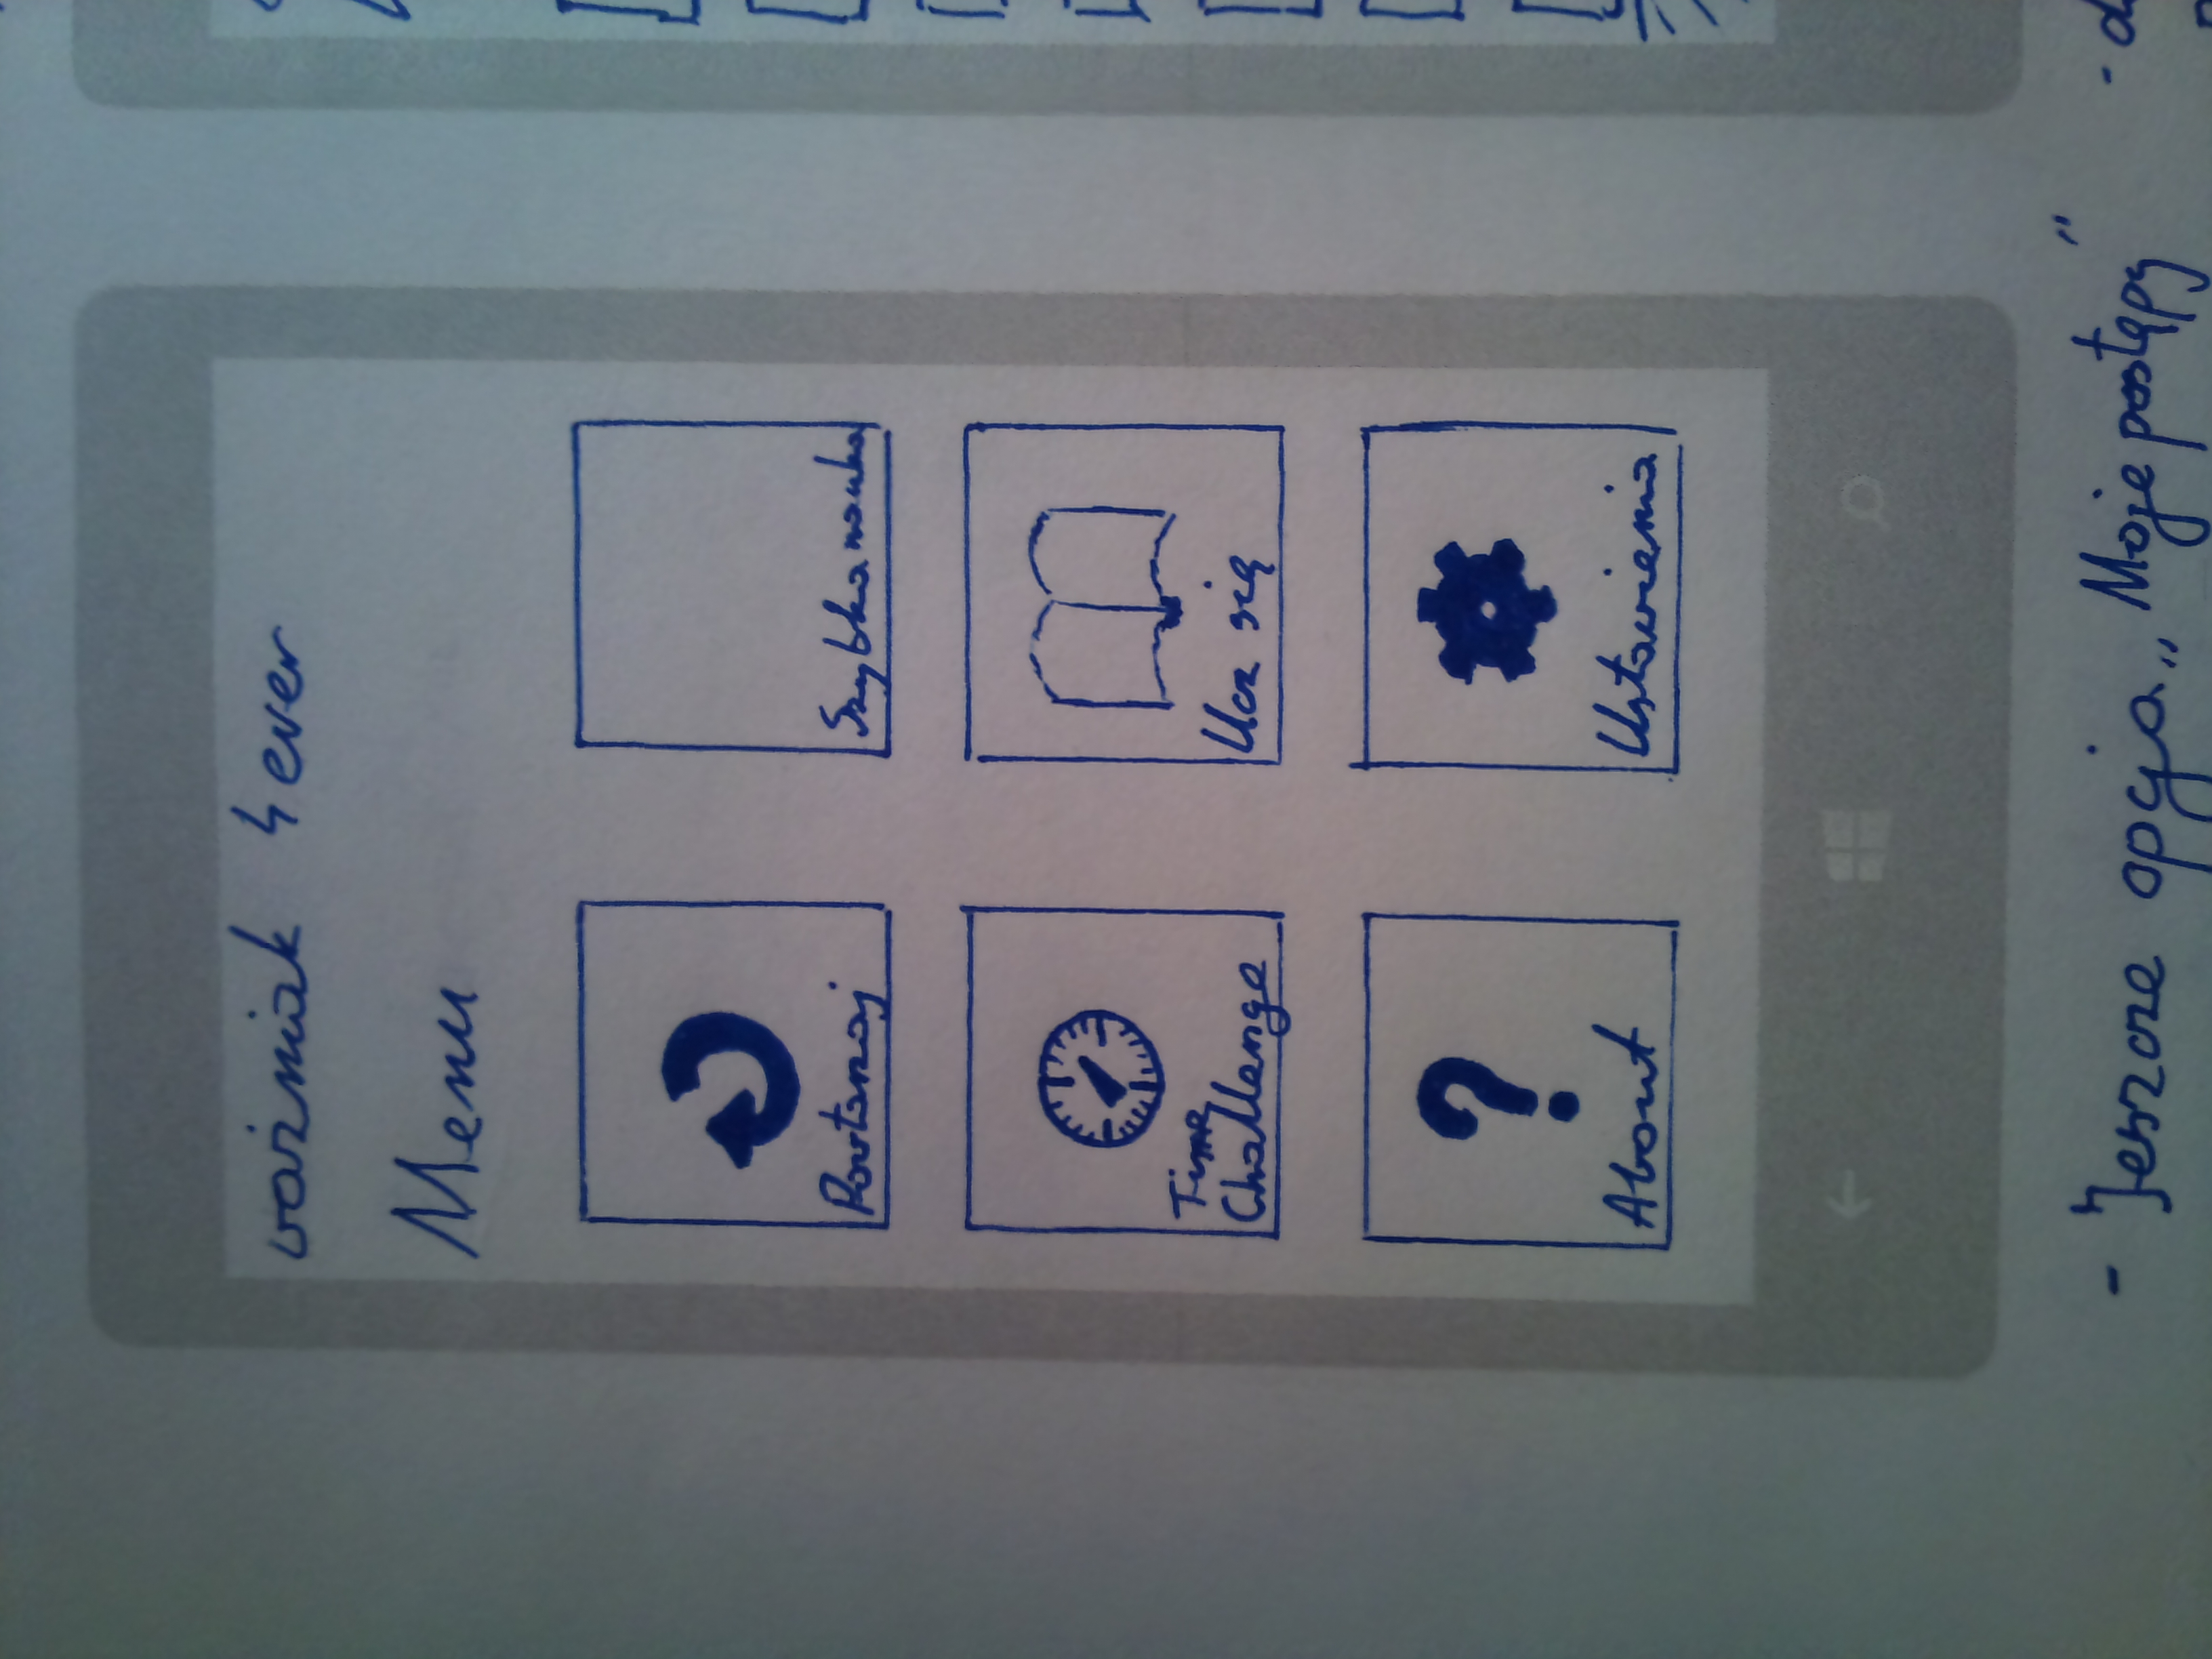 woźniak 4 ever
Menu
Powtarzaj
Szybka nauka
Time
Challenge
Ucz się
About
Ustawienia
- Jeszcze opcja „Moje postępy"
-